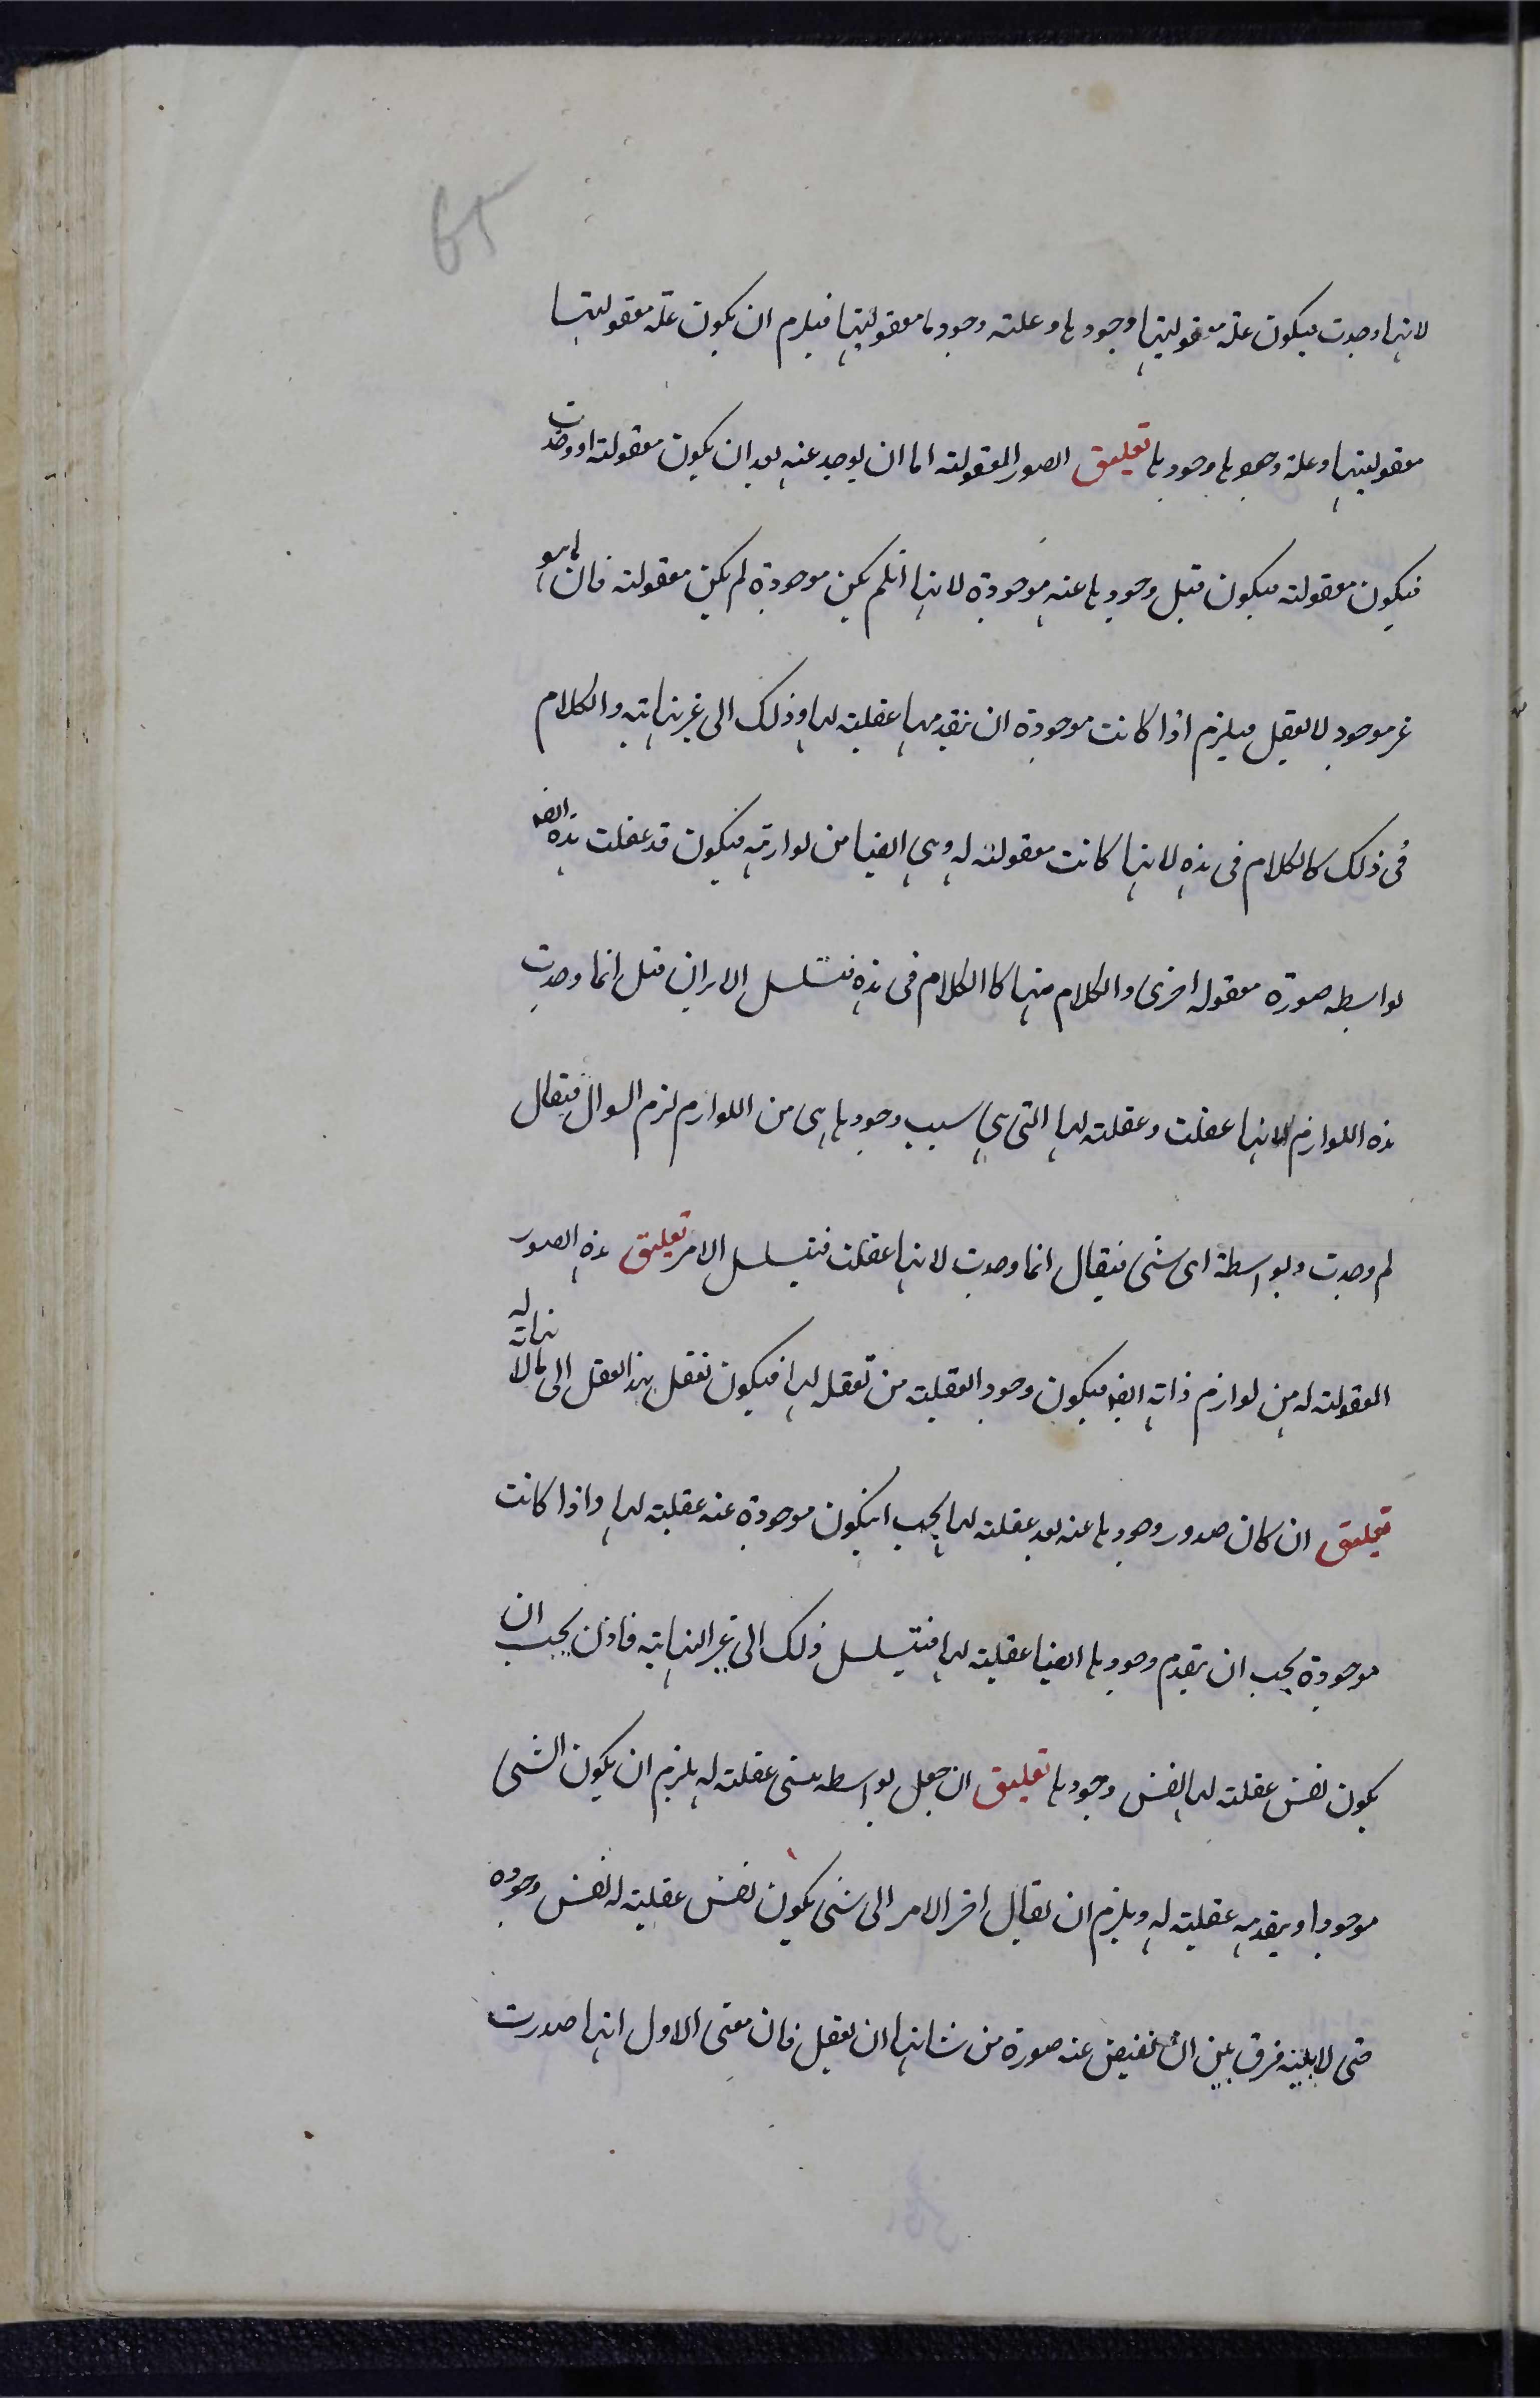 65
لانها وجدت فيكون علة معقوليتها وجودها وعلته وجودها معقوليتها فيلزم ان يكون علة معقوليتها
معقوليتها وعلة وجودها وجودها تعليق الصور المعقولة اما ان يوجد عنه بعد ان يكون معقولة او وجدت
فيكون معقولة فيكون قبل وجودها عنه موجودة لانها ان لم يكن موجودة لم يكن معقولة فان ما هو
غير موجود لا يعقل فيلزم اذا كانت موجودة ان تقدمها عقليته لها وذلك الى غير نهاية والكلام
فى ذلك كالكلام فى هذه لانها كانت معقولة له وهى ايضا من لوازمه فيكون قد عقلت هذه ايضا
بواسطه صورة معقوله اخرى والكلام فيها كالكلام فى هذه فتسلسل الامر ان قيل انما وجدت
هذه اللوازم لانها عقلت وعقلته لها التى هى سبب وجودها هى من اللوازم لزم السوال فيقال
لم وجدت وبواسطة اى شئ فيقال انما وجدت لانها عقلت فتسلسل الامر تعليق هذه الصور
المعقولة له من لوازم ذاته ايضا فيكون وجود العقلية من تعقله لها فيكون تعقل هذا العقل الى ما لا نهاية له
تعليق ان كان صدور وجودها عنه بعد عقلته لها يجب ان يكون موجودة عنه عقليته لها واذا كانت
موجودة يجب ان يتقدم وجودها ايضا عقليته لها فتسلسل ذلك الى غير النهاية فاذن يجب ان
يكون نفس عقلته لها نفس وجودها تعليق ان جعل بواسطه شئ عقلته له يلزم ان يكون الشئ
موجودا ويقدمه عقليته له ويلزم ان يقال اخر الامر الى شئ يكون نفس عقليته له نفس وجوده
حتى لا يلزمه فرق بين ان يفيض عنه صورة من شانها ان تعقل فان معنى الاول انها صدرت